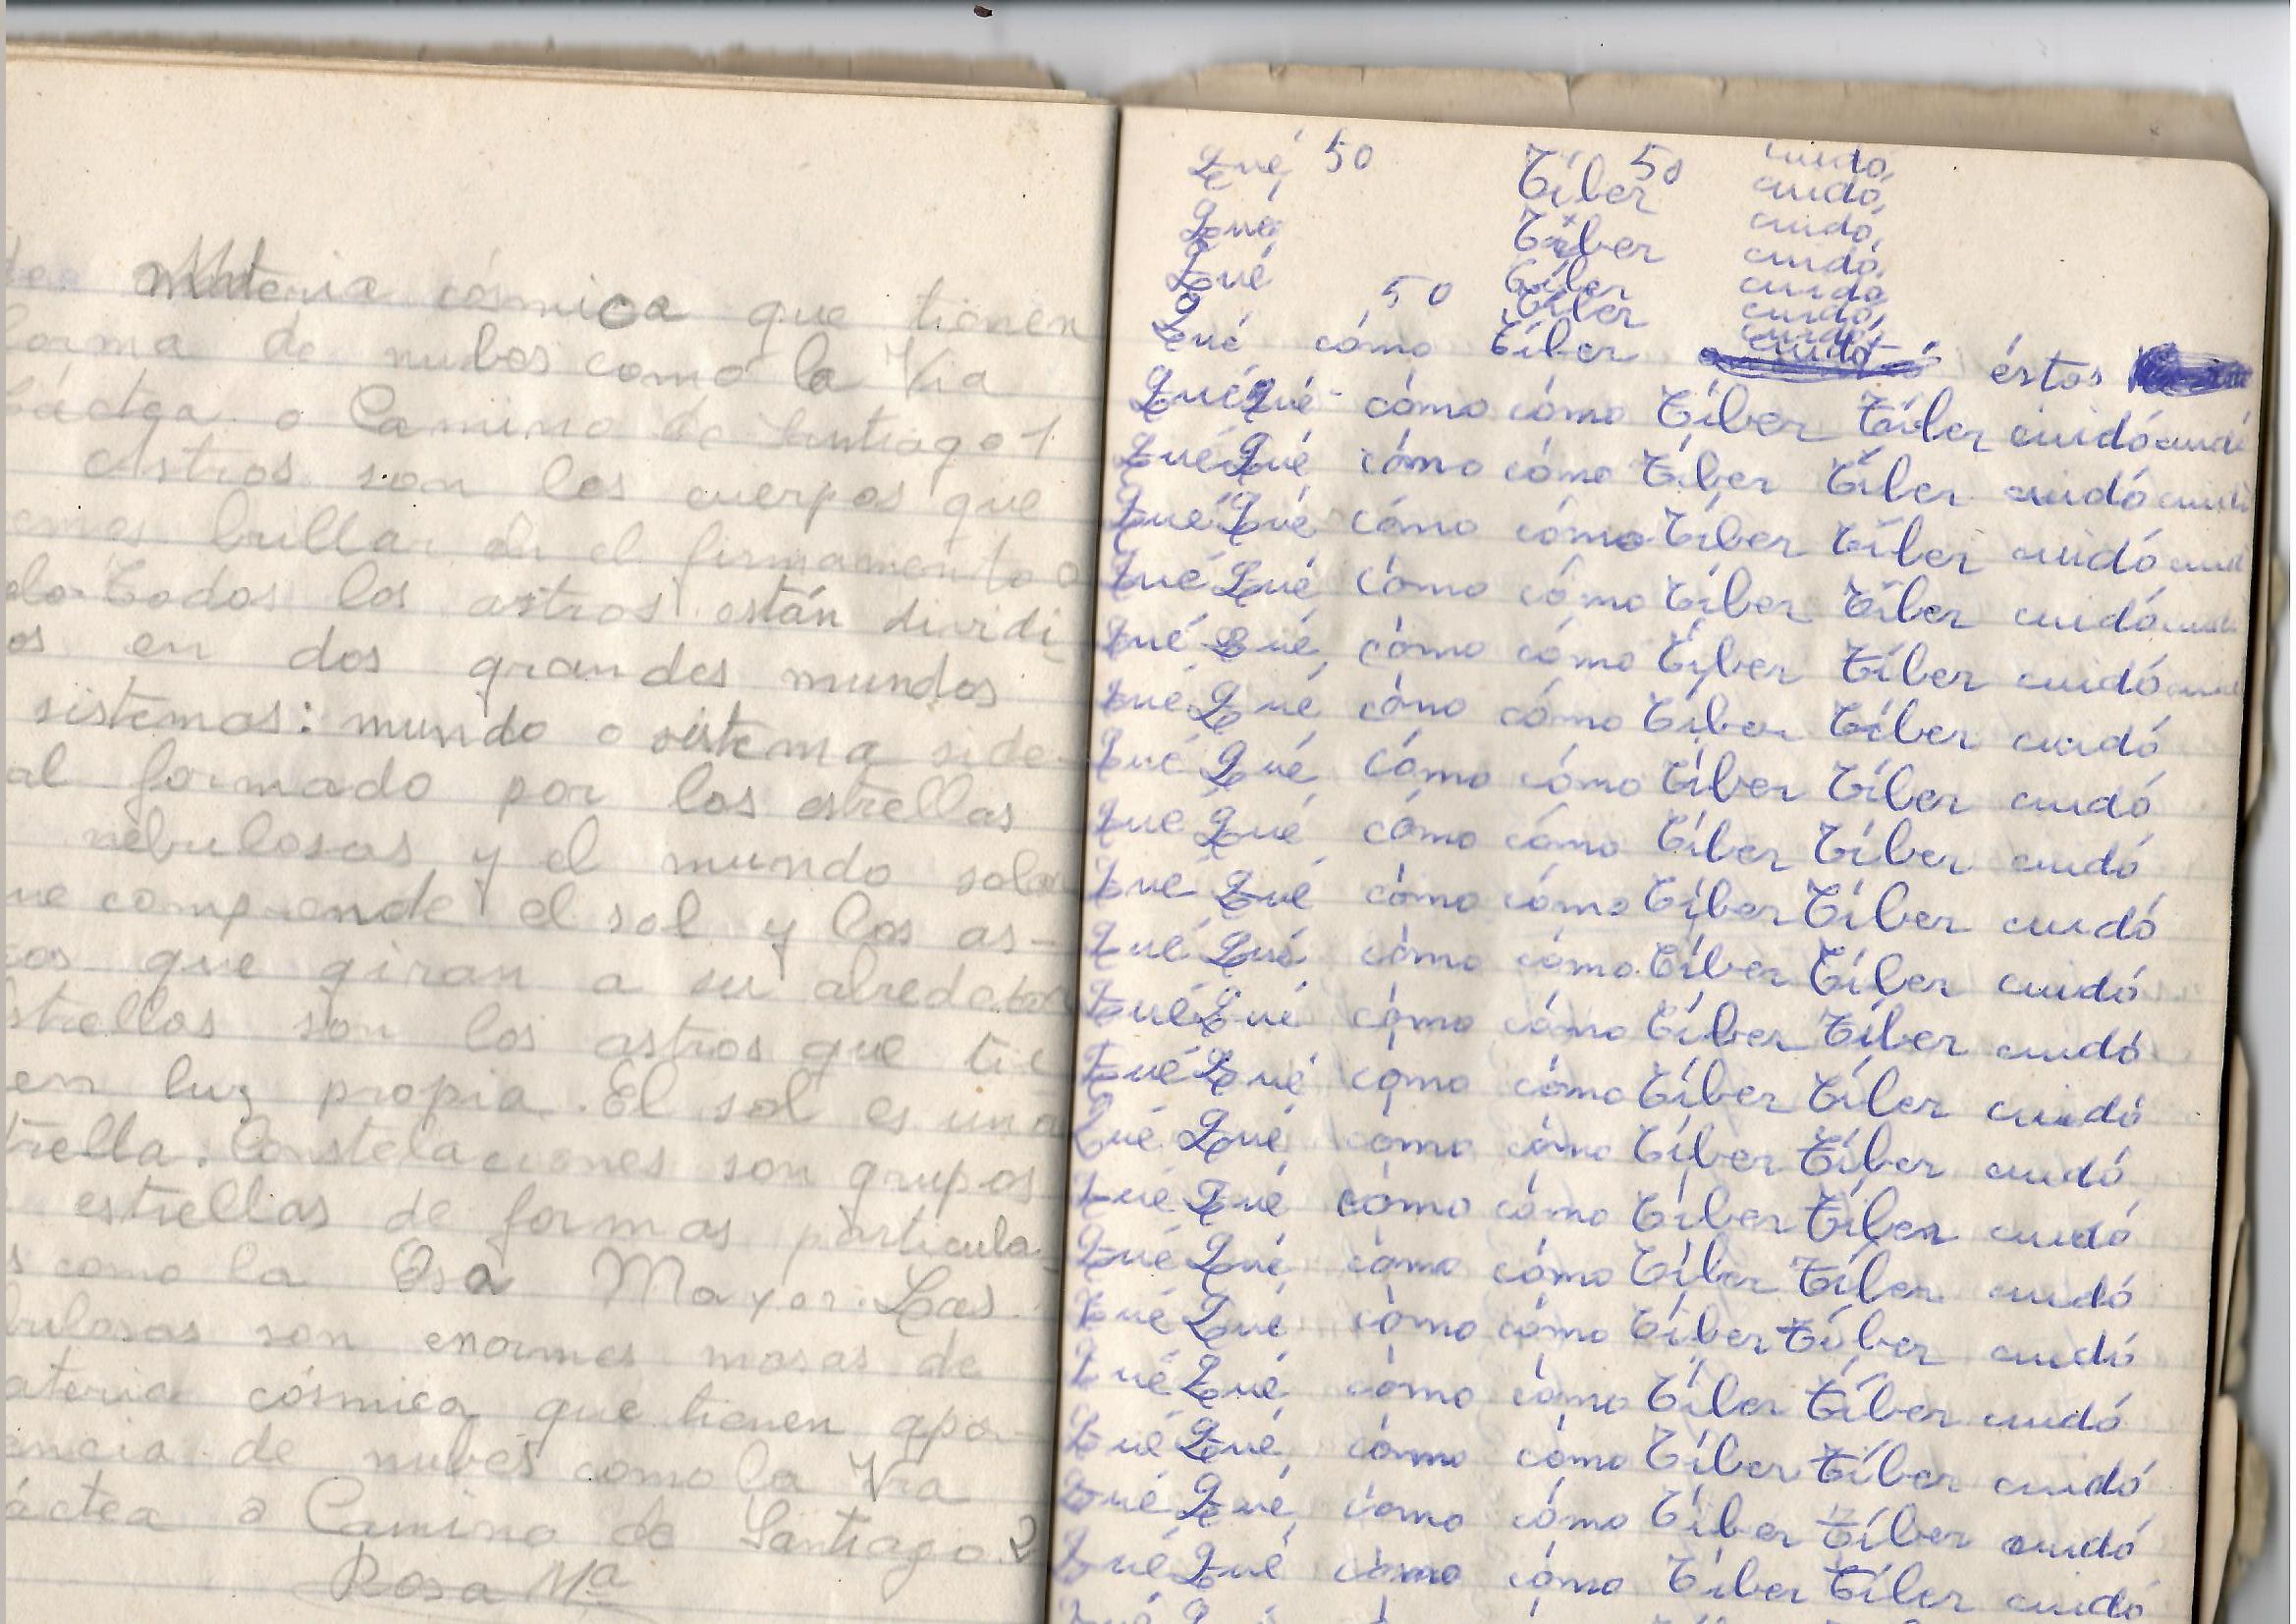 de materia cósmica que tienen
forma de nubes como la Via
Láctea o Camino de Santiago 1
Astros son los cuerpos que
emos brillar en el firmamento o
elo. Todos los astros están dividi
os en dos grandes mundos
sistemas: mundo o sistema side-
al formado por los estrellas
nebulosas y el mundo solar
ue comprende el sol y los as-
ros que giran a su alrededor
strellas son los astros que tie
en luz propia. El sol es una
trella. Constelaciones son grupos
estrellas de formas particula-
s como la Osa Mayor. Las
bulosas son enormes masas de
ateria cósmica que tienen apa-
encia de nubes como la Via
áctea o Camino de Santiago. 2
Rosa Mª
Qué 50 Tíber 50 cuidó
Qué Tíber cuidó
Qué Tíber cuidó
50 Tíber cuidó
Qué cómo Tíber cuidó éstos
Qué Qué cómo cómo Tíber Tíber cuidó cuidó
Qué Qué cómo cómo Tíber Tíber cuidó cuidó
Qué Qué cómo cómo Tíber Tíber cuidó cuid
Qué Qué cómo cómo Tíber Tíber cuidó cuid
Qué Qué cómo cómo Tíber Tíber cuidó cuid
Qué Qué cómo cómo Tíber Tíber cuidó
Qué Qué cómo cómo Tíber Tíber cuidó
Qué Qué cómo cómo Tíber Tíber cuidó
Qué Qué cómo cómo Tíber Tíber cuidó
Qué Qué cómo cómo Tíber Tíber cuidó
Qué Qué cómo cómo Tíber Tíber cuidó
Qué Qué cómo cómo Tíber Tíber cuidó
Qué Qué cómo cómo Tíber Tíber cuidó
Qué Qué cómo cómo Tíber Tíber cuidó
Qué Qué cómo cómo Tíber Tíber cuidó
Qué Qué cómo cómo Tíber Tíber cuidó
Qué Qué cómo cómo Tíber Tíber cuidó
Qué Qué cómo cómo Tíber Tíber cuidó
Qué Qué cómo cómo Tíber Tíber cuidó
Qué Qué cómo cómo Tíber Tíber cuidó